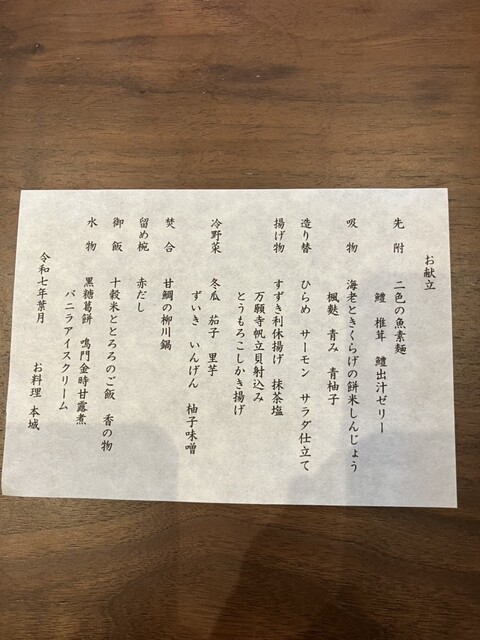 お献立
先附 二色の魚素麺
鱧 椎茸 鱧出汁ゼリー
吸物 海老ときくらげの餅米しんじょう
楓麩 青み 青柚子
造り替 ひらめ サーモン サラダ仕立て
揚げ物 すずき利休揚げ 抹茶塩
万願寺帆立貝射込み
とうもろこしかき揚げ
冷野菜 冬瓜 茄子 里芋
ずいき いんげん 柚子味噌
焚合 甘鯛の柳川鍋
留め椀 赤だし
御飯 十穀米ととろろのご飯 香の物
水物 黒糖葛餅 鳴門金時甘露煮
バニラアイスクリーム
令和七年葉月 お料理 本城